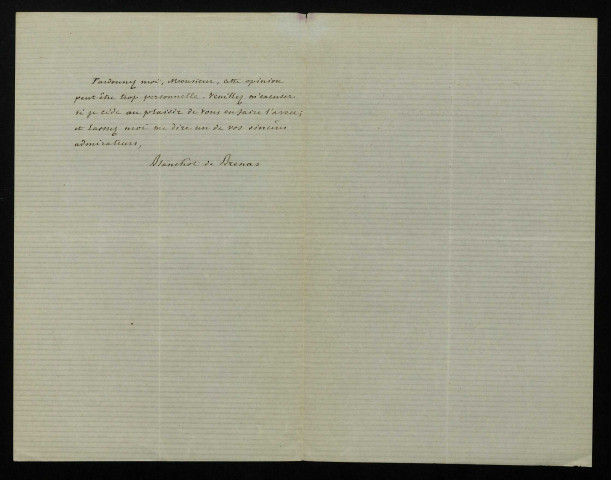 Pardonnez moi, Monsieur, cette opinion
peut être trop personnelle. Veuillez m'excuser
si je cède au plaisir de vous en faire l'aveu;
et laissez moi me dire un de vos sincères
admirateurs,
Blanchot de Brenas